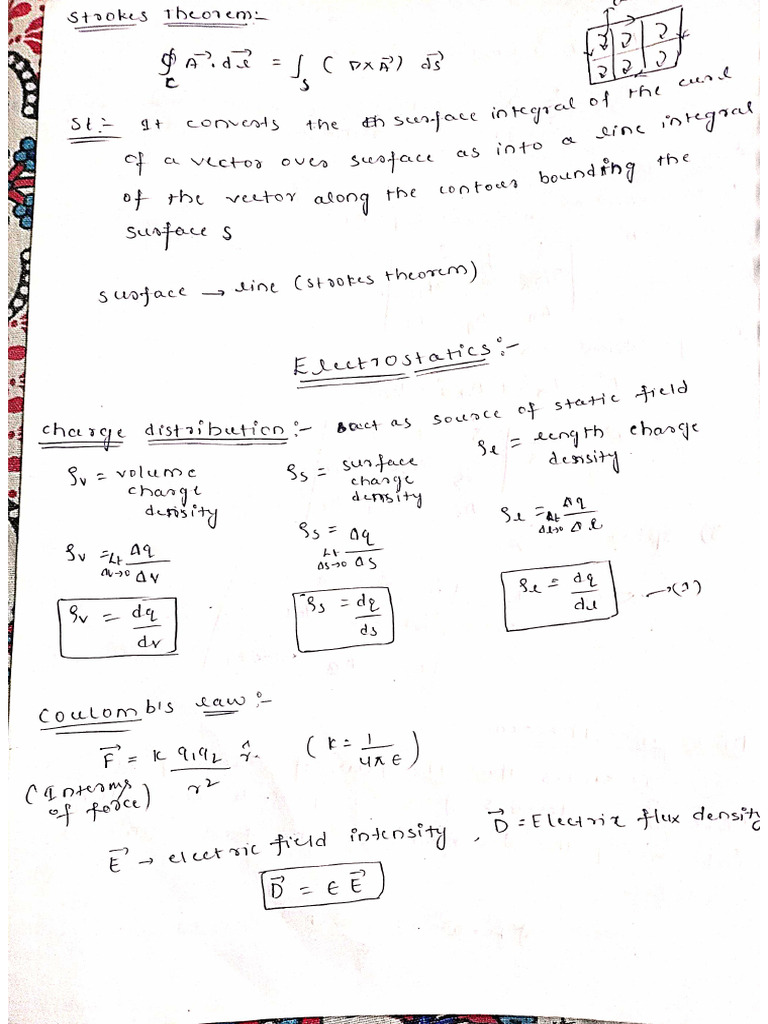 Strokes Theorem:-
∮ A⃗.dl⃗ = ∫ (∇×A⃗) ds⃗
C S
St:- It converts the surface integral of the curl
of a vector over surface as into a line integral
of the vector along the contour bounding the
surface S
surface → line (strokes theorem)
Electrostatics:-
charge distribution:- act as source of static field
ρv = volume charge density
ρs = surface charge density
ρl = length charge density
ρv = Lt Δv→0 Δq/Δv
ρs = Lt Δs→0 Δq/Δs
ρl = Lt Δl→0 Δq/Δl
ρv = dq/dv
ρs = dq/ds
ρl = dq/dl →(1)
Coulombis law:-
F⃗ = K q1q2/r2 r̂. (K = 1/4πε)
(Interms
of force)
E⃗ → electric field intensity, D⃗ = Electrix flux density
D⃗ = ε E⃗